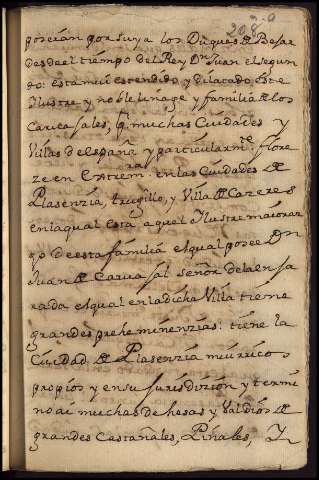 208
poseían por suya los Duques de Besar
desde el tiempo del Rey Dn Juan el segun
do: esta mui estendido y dilacado este
Ilustre y noble linage y familia de los
Carvasales, q muchas Ciudades y
Villas de españa y particularmte flore
ze en Extrem.ra en las Ciudades de
Plasenzia, trugillo, y Villa de Cazeres
en la qual esta aquel Ilustre maiorar
go de esta familia el qual posee Dn
Juan de Carvasal señor de la ensa
rada el qual en la dicha Villa tiene
grandes prehemìnenzias: tiene la
Ciudad de Plasenzia mui ricos
propios y en su Jurisdizion y termi
no ai muchas dehesas y Valdios de
grandes Castañales, Piñales, Y